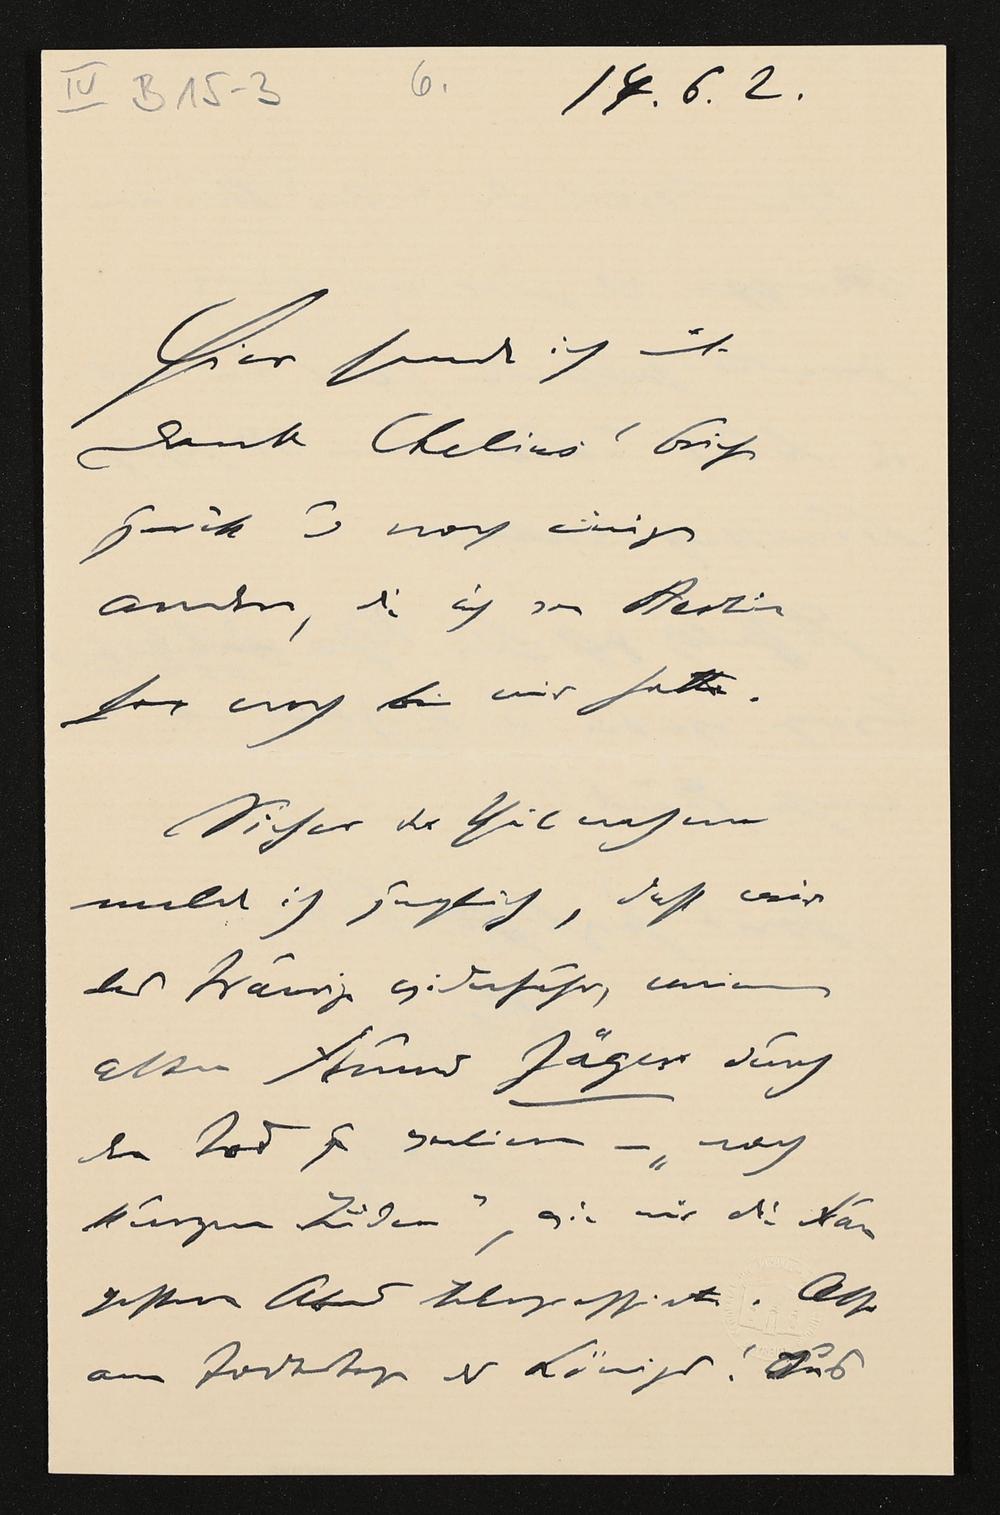 IV B 15-3 6. 14. 6. 2.
Hier sende ich mit
Dank Chelius' Brief
zurück u noch einige
andere, die ich von Berlin
her noch bei mir hatte.
Sicher der Theilnahme
melde ich zugleich, daß mir
das Traurige widerfuhr, meinen
alten Freund Jäger durch
den Tod zu verlieren – „nach
kurzem Leiden", wie mir die Frau
gestern Abend telegraphirte. Also
am Todestage des Königs! Und